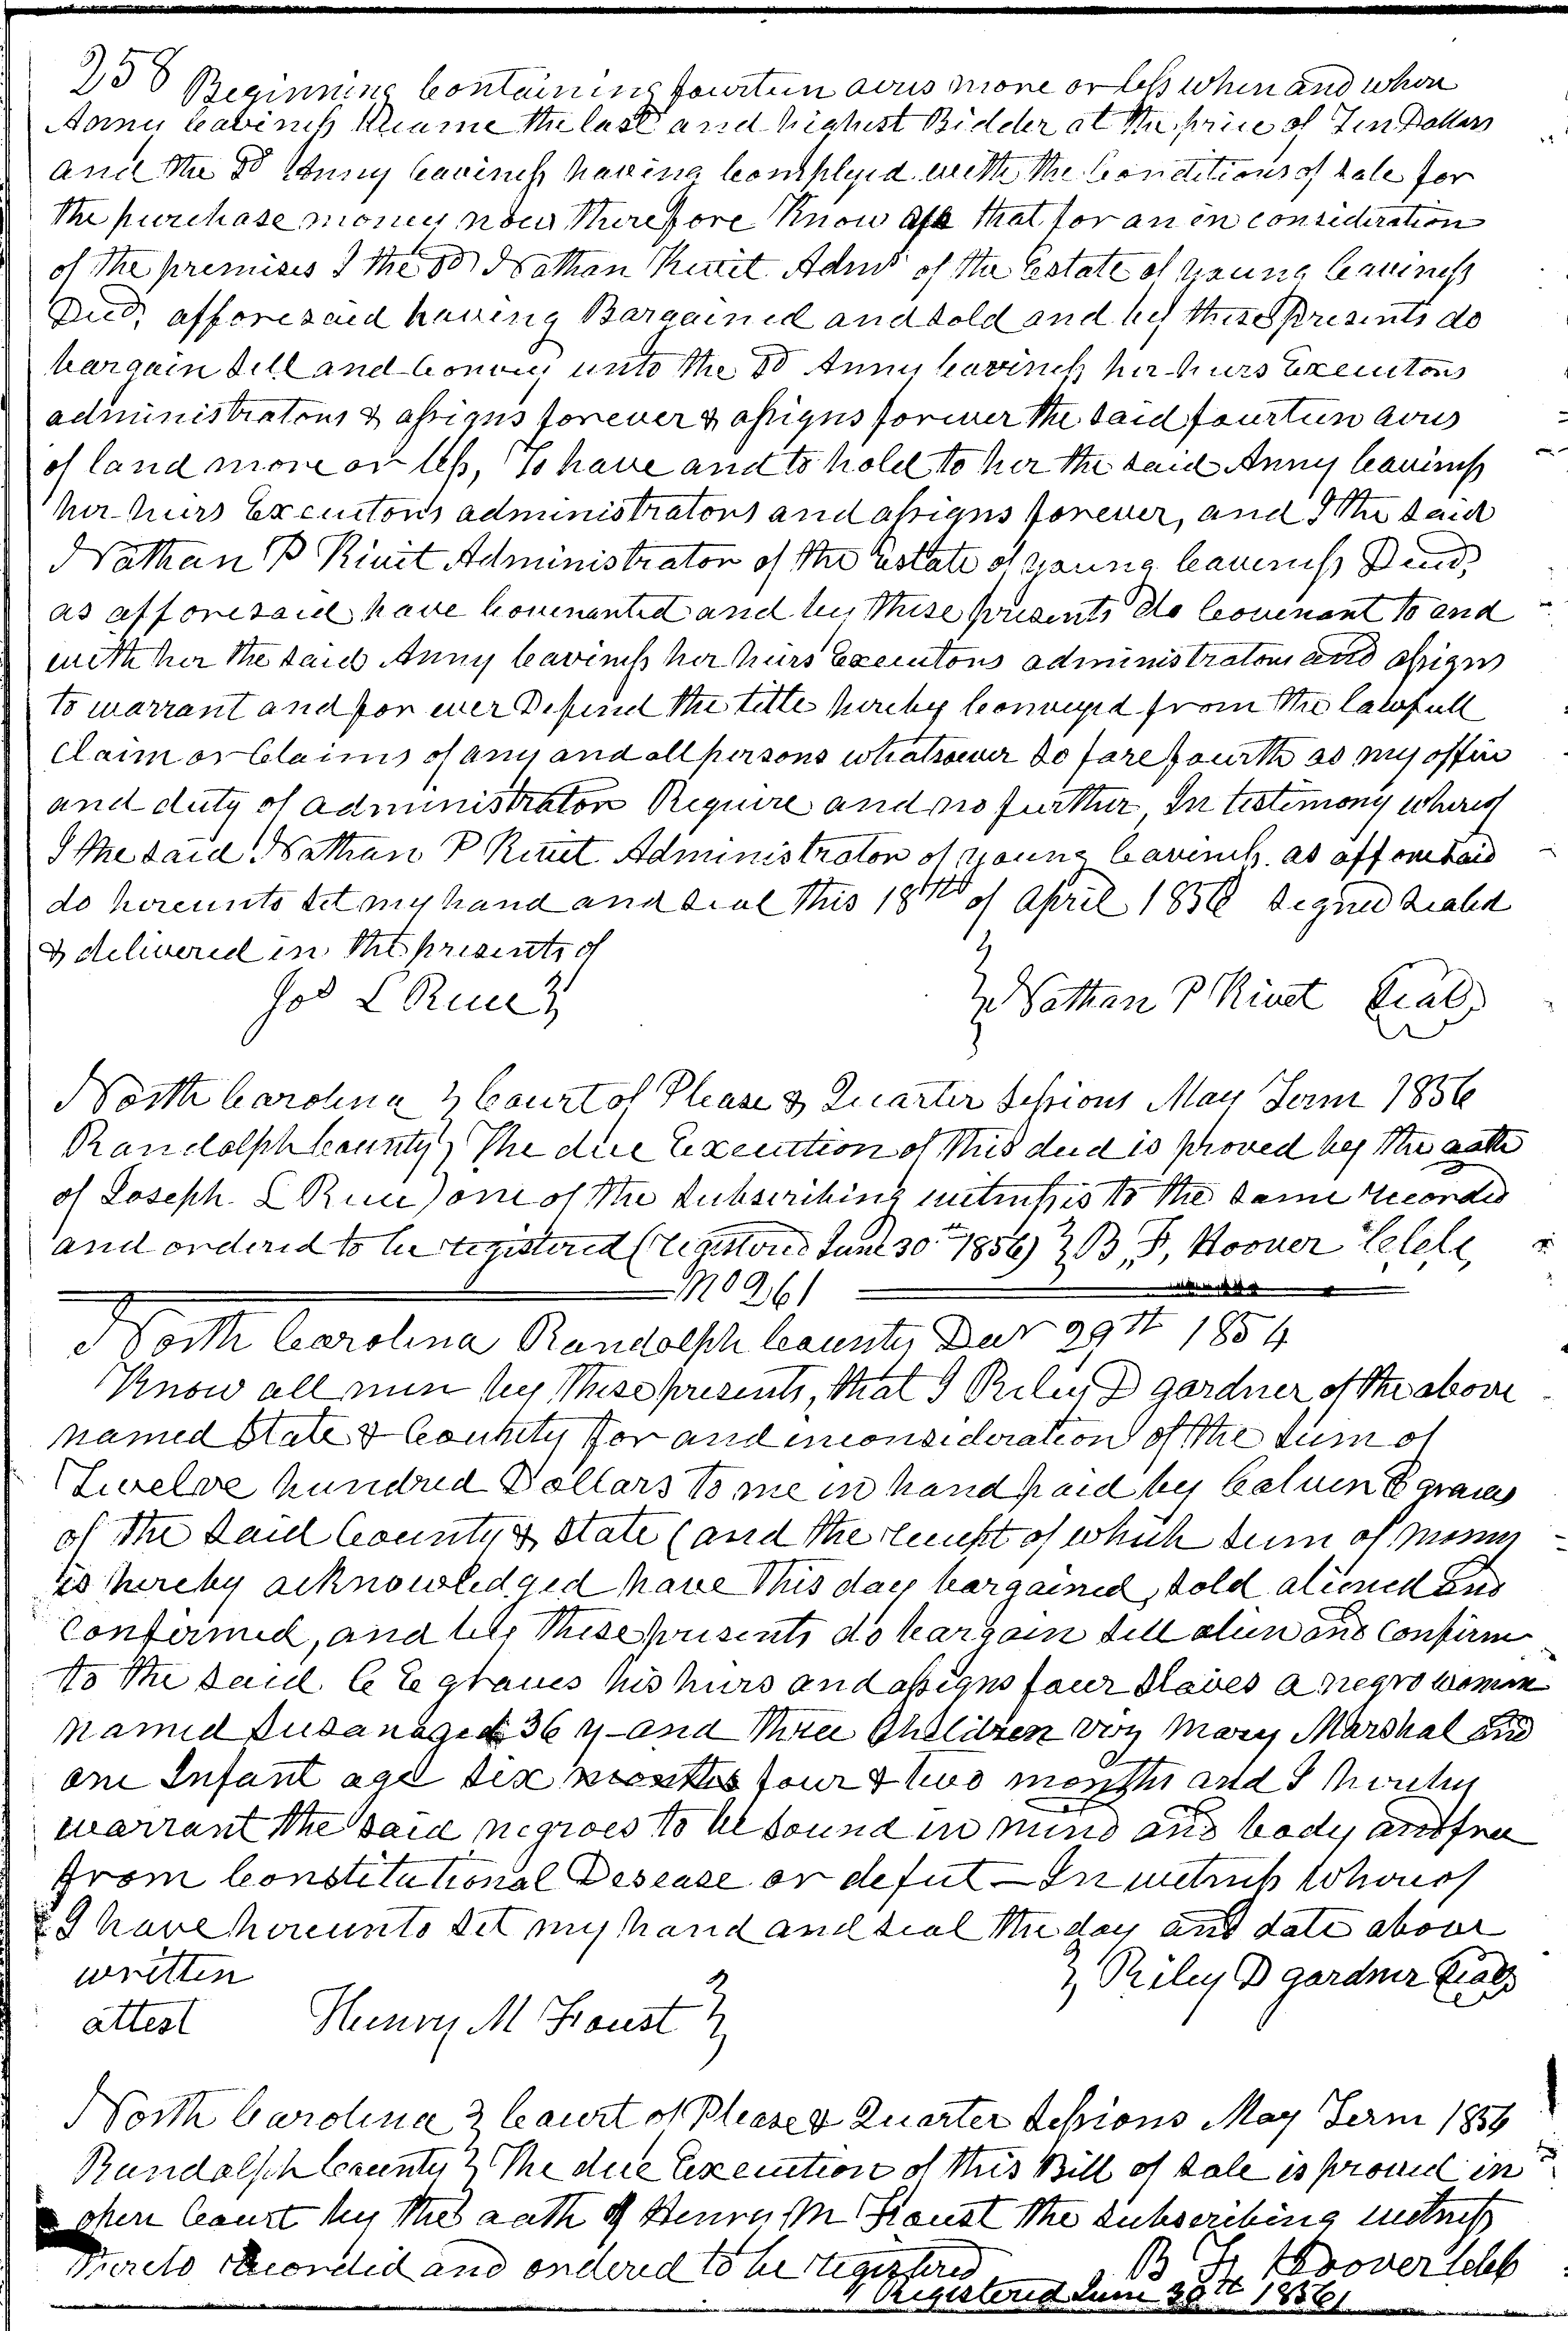 258 Beginning Containing fourteen acres more or less when and where
Anny Caviness became the last and highest Bidder at the price of Ten Dollars
and the sd Anny Caviness having Complyed with the Conditions of sale for
the purchase money now Therefore Know that for an in consideration
of the premises I the sd Nathan Adms of the Estate of young Caviness
Decd, afforesaid having Bargained and sold and by these presents do
bargain sell and Convey unto the sd Anny Caviness her heirs Executors
administrators & assigns forever & assigns forever the said fourteen acres
of land more or less, To have and to hold to her the said Anny Caviness
her heirs Executors administrators and assigns forever, and I the said
Nathan P Rivit Administrator of the Estate of young Caveness Decd,
as afforesaid have Covenanted and by these presents do Covenant to and
with her the said Anny Caviness her heirs Executors administrators and assigns
to warrant and for ever Defend the title hereby Conveyed from the lawfull
Claim or Claims of any and all persons whatsoever so fare fourth as my office
and duty of administrator Require and no further, In testimony whereof
I the said Nathan P Rivet Administrator of young Caviness as afforesaid
do hereunto set my hand and seal this 18th of April 1856 Signed Sealed
& delivered in the presents of
Jos L Rice
Nathan P Rivet Seal
North Carolina } Court of Please & Quarter Sessions May Term 1856
Randolph County } The due Execution of this deed is proved by the oath
of Joseph L Rice) one of the subscribing witnesses to the same recorded
and ordered to be registered (registored June 30th 1856) } B, F, Hoover Cclk,
No 261
North Carolina Randolph County Dec 29th 1854
Know all men by these presents, that I Riley D gardner of the above
named State & County for and inconsideration of the sum of
Twelve hundred Dollars to me in hand paid by Calvin E graves
of the said County & State (and the receipt of which sum of money
is hereby acknowledged have this day bargained, sold aliened and
Confirmed, and by these presents do bargain sell alien and Confirm
to the said C E graves his heirs and assigns four Slaves a negro woman
named Susan aged 36 y and Three Children viz Mary Marshal and
one Infant age six months four & two months and I hereby
warrant the said negroes to be sound in mind and body and free
from Constitutional Desease or defect — In witness Whereof
I have hereunto set my hand and seal the day and date above
written
} Riley D gardner Seal
attest Henry M Foust }
North Carolina } Court of Please & Quarter Sessions May Term 1856
Randolph County } The due Execution of this Bill of sale is proved in
open Court by the oath of Henry M Foust the subscribing witness
thereto recorded and ordered to be registered B F Hoover Cclk
Registered June 30th 1856